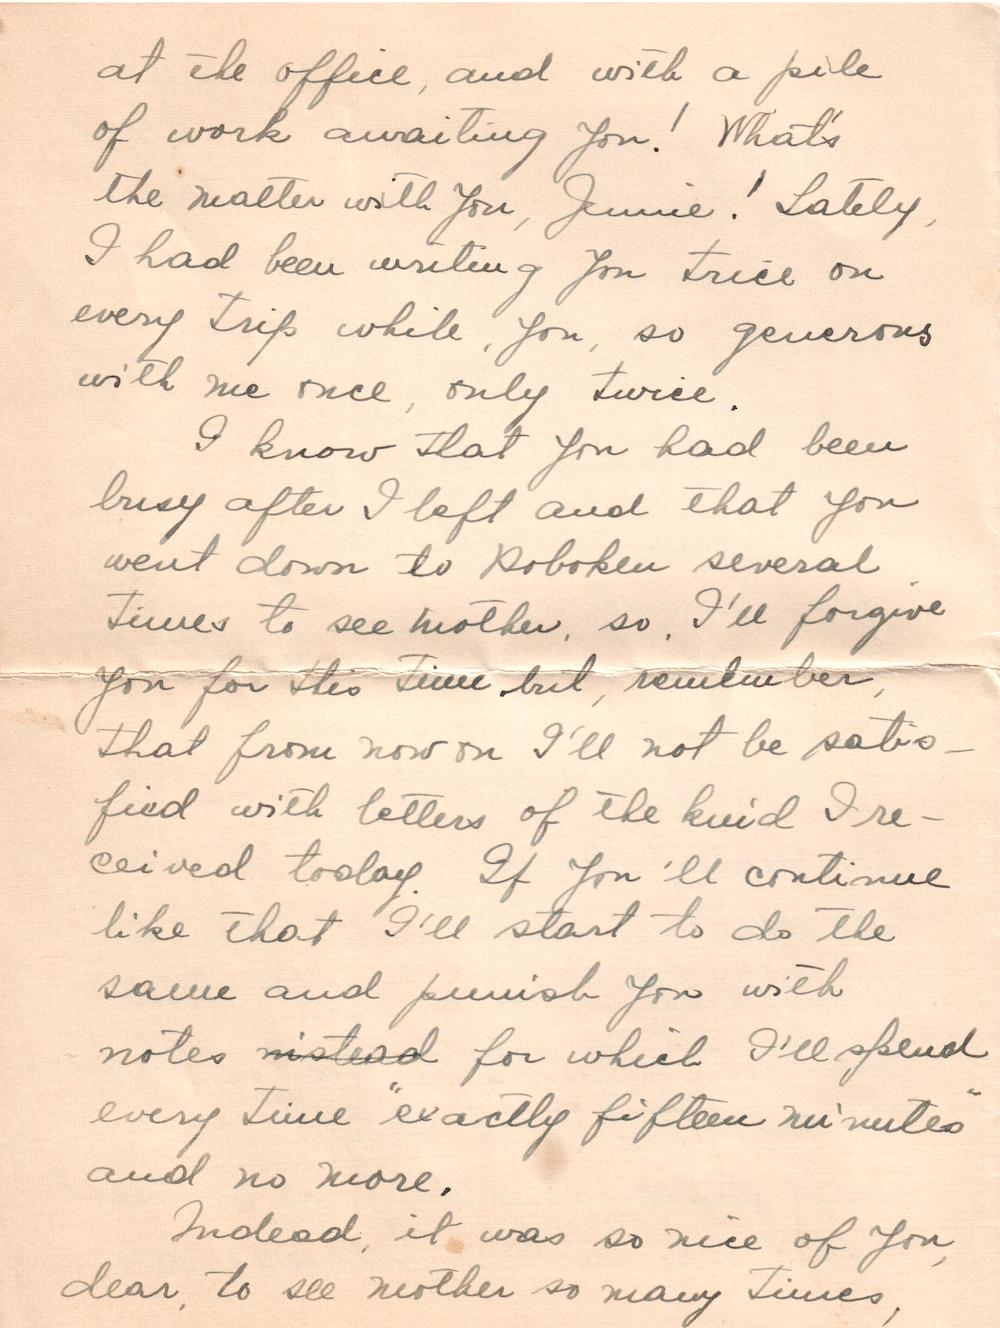 at the office, and with a pile
of work awaiting you! What's
the matter with you, Jennie! Lately,
I had been writing you trice on
every trip while, you, so generous
with me once, only twice.
I know that you had been
busy after I left and that you
went down to Hoboken several
times to see mother, so, I'll forgive
you for this time but, remember,
that from now on I'll not be satis-
fied with letters of the kind I re-
ceived today. If you'll continue
like that I'll start to do the
same and punish you with
notes instead for which I'll spend
every time "exactly fifteen minutes"
and no more.
Indead, it was so nice of you,
dear, to see mother so many times,